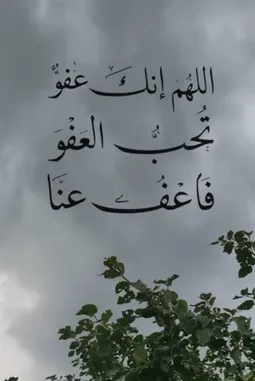 اللهُم إنك عَفوٌّ
تُحبُّ العَفْوَ
فَاعْفُ عنَّا